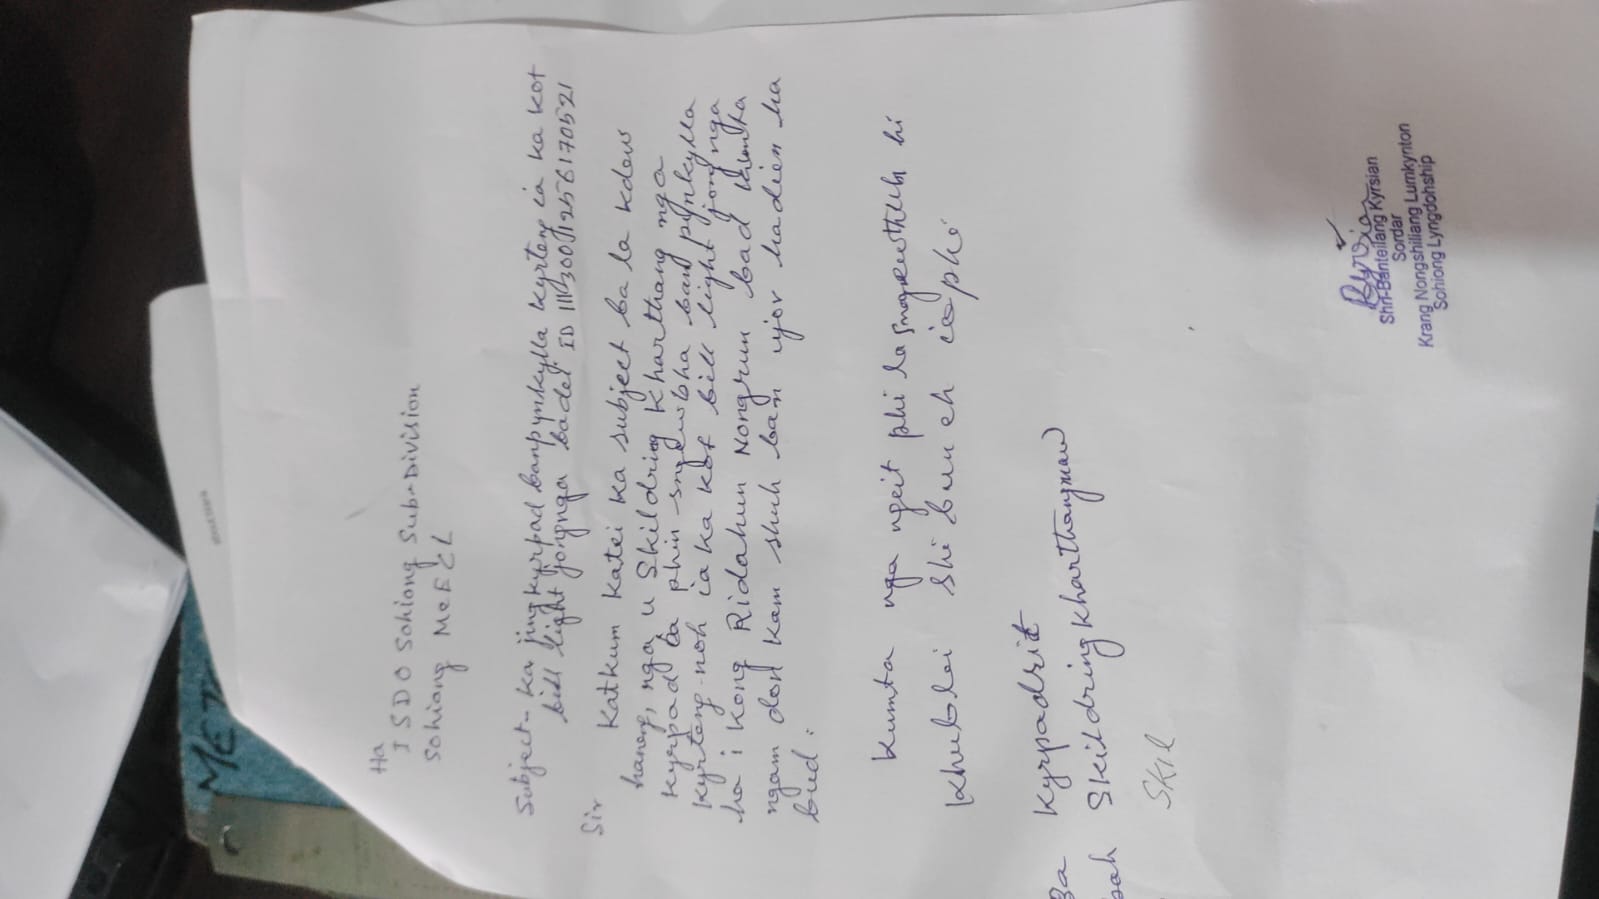 Ha
I SDO Sohiong Sub-Division
Sohiong MeECL
Subject- Ka jingkyrpad banpynkylla kyrteng ia ka kot
bill light jongnga badei ID 111300012556170521
Sir
Katkum katei ka subject ba la kdew
haneng, nga u Skildring Kharthang nga
kyrpad ba phin sngewbha ban pynkylla
kyrteng noh ia ka kot bill light jong nga
ha i Kong Ridahun Nongrum bad kumta
ngam don kam shuh ban ïjor hadien ha
bud.
Kumta nga ngeit phi la sngewthuh hi
Khublei shi bun eh ia phi.
Ba Kyrpadrit
bah Skildring Kharthangmaw
SKIL
Shri Banteilang Kyrsian
Sordar
Krang Nongshiliang Lumkynton
Sohiong Lyngdohship
METE